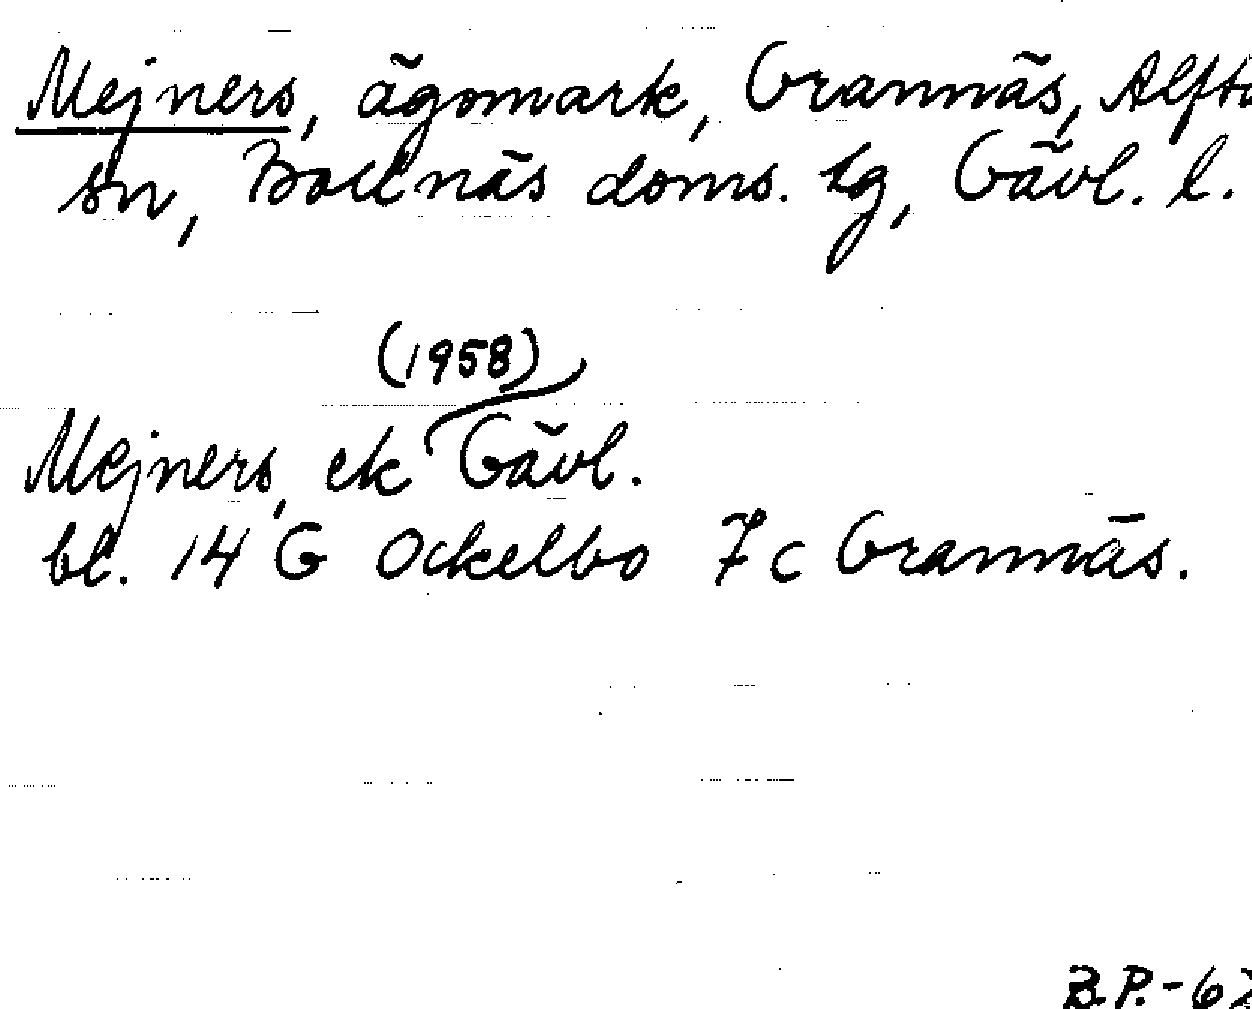 Mejners, ägomark, Grannäs, Alfta
sn, Bollnäs doms. tg, Gävl. l.
(1958)
Mejners, ek Gävl.
bl. 14 G Ockelbo 7c Grannäs.
B.P.-62